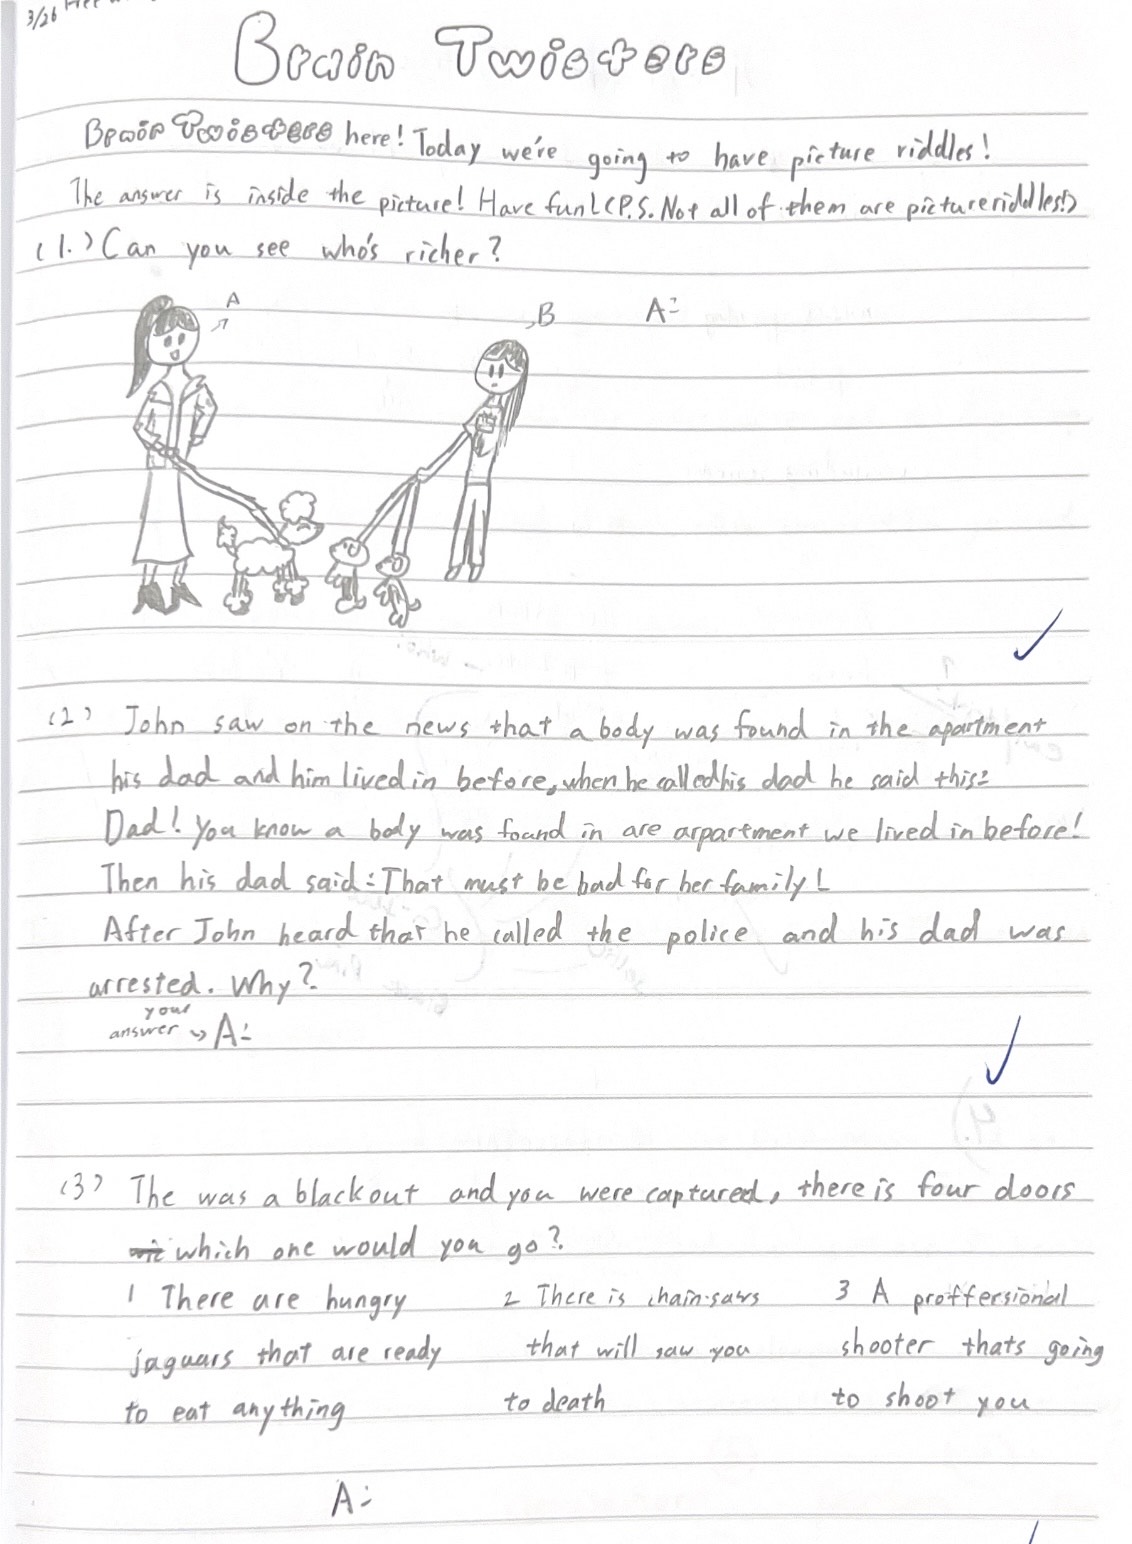 3/26
Brain Twisters
Brain Twisters here! Today we're going to have picture riddles!
The answer is inside the picture! Have fun! (P.S. Not all of them are picture riddles!)
(1.) Can you see who's richer?
A
B
A:
(2) John saw on the news that a body was found in the apartment
his dad and him lived in before, when he called his dad he said this:
Dad! You know a body was found in are arpartment we lived in before!
Then his dad said: That must be bad for her family!
After John heard that he called the police and his dad was
arrested. Why?
your
answer → A:
(3) The was a blackout and you were captured, there is four doors
which one would you go?
1 There are hungry
jaguars that are ready
to eat anything
2 There is chain-saws
that will saw you
to death
3 A proffersional
shooter thats going
to shoot you
A: